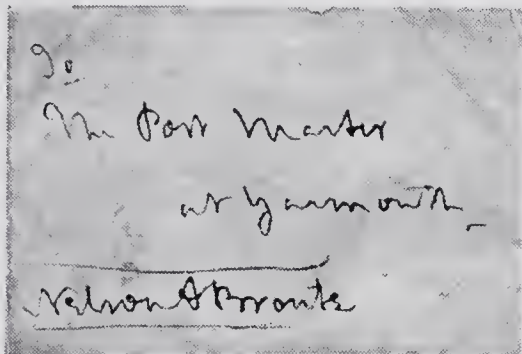 To
The Post Master
at Yarmouth
Nelson & Bronte